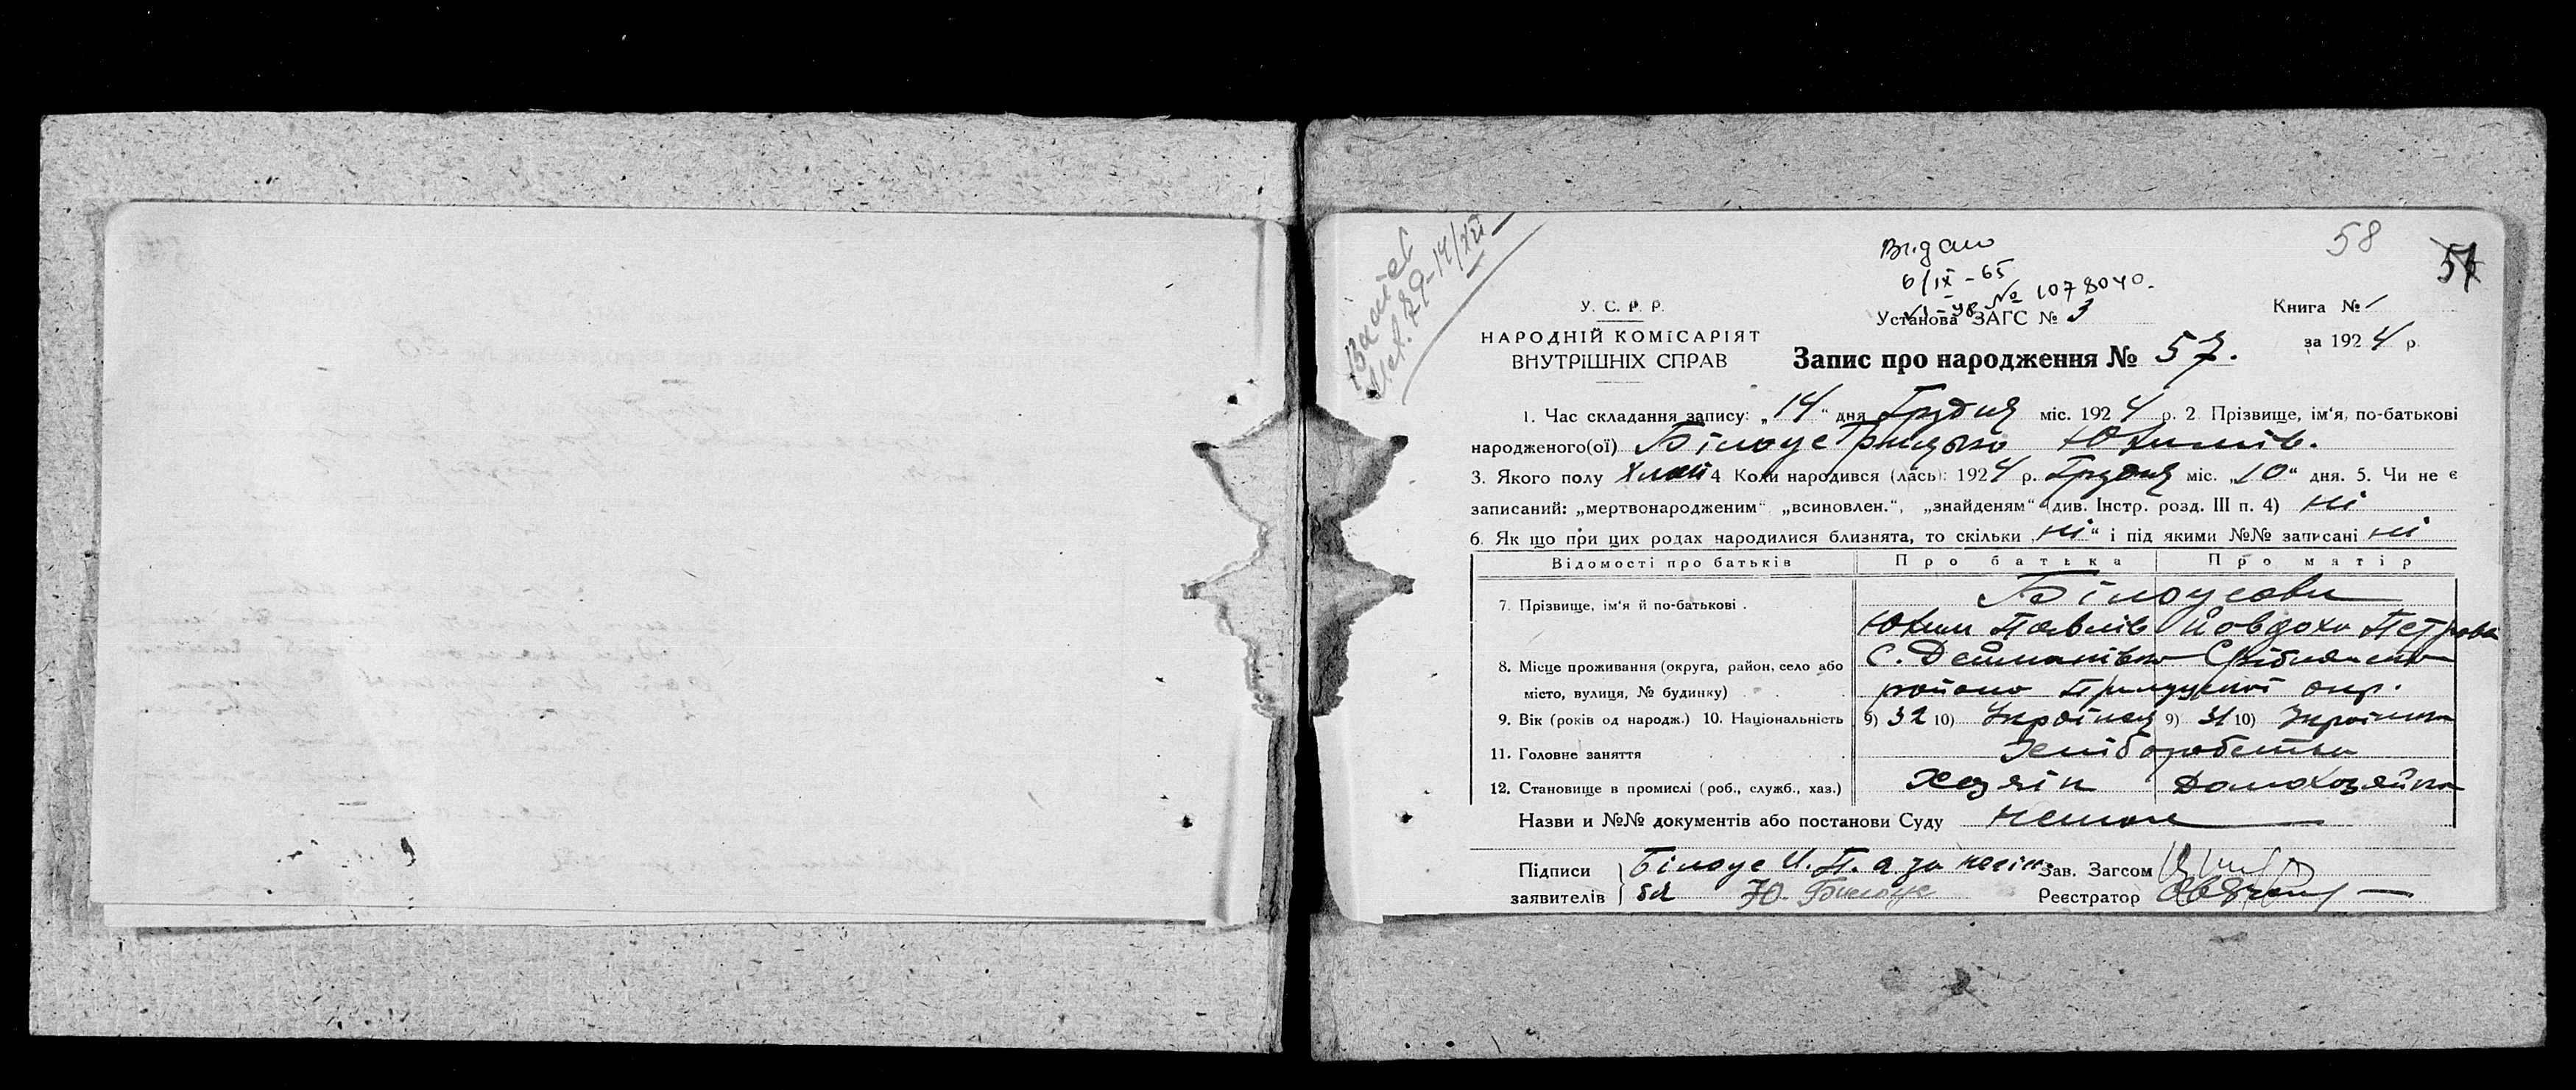 58
57
Видано
6/IX-65
VI-ЯЯ № 1078040.
У. С. Р. Р.
НАРОДНІЙ КОМІСАРІЯТ
ВНУТРІШНІХ СПРАВ
Установа ЗАГС № 3
Книга № 1
за 1924 р.
Запис про народження № 57.
1. Час складання запису: „14“ дня Грудня міс. 1924 р. 2. Прізвище, ім'я, по-батькові
народженого(ої) Білоус Грицько Юхимів.
3. Якого полу Хлоп 4 Коли народився (лась): 1924 р. Грудня міс. „10“ дня. 5. Чи не є
записаний: „мертвонародженим“ „всиновлен.“, „знайденям“ (див. Інстр. розд. III п. 4) ні
6. Як що при цих родах народилися близнята, то скільки „ні“ і під якими №№ записані ні
Відомості про батьків Про батька Про матір
7. Прізвище, ім'я й по-батькові . Білоусови
Юхим Павлів Йовдоха Петрова
8. Місце проживання (округа, район, село або С. Дейманівка Срібнянського
місто, вулиця, № будинку) району Прилуцької окр.
9. Вік (років од народж.) 10. Національність 9) 32 10) Українец 9) 31 10) Українка
11. Головне заняття Хліборобство
12. Становище в промислі (роб., служб., хаз.) Хозяін Домохозяйка
Назви и №№ документів або постанови Суду Немає
Підписи Білоус И. П. а за
заявителів Ю. Билоус
Зав. Загсом
Реєстратор